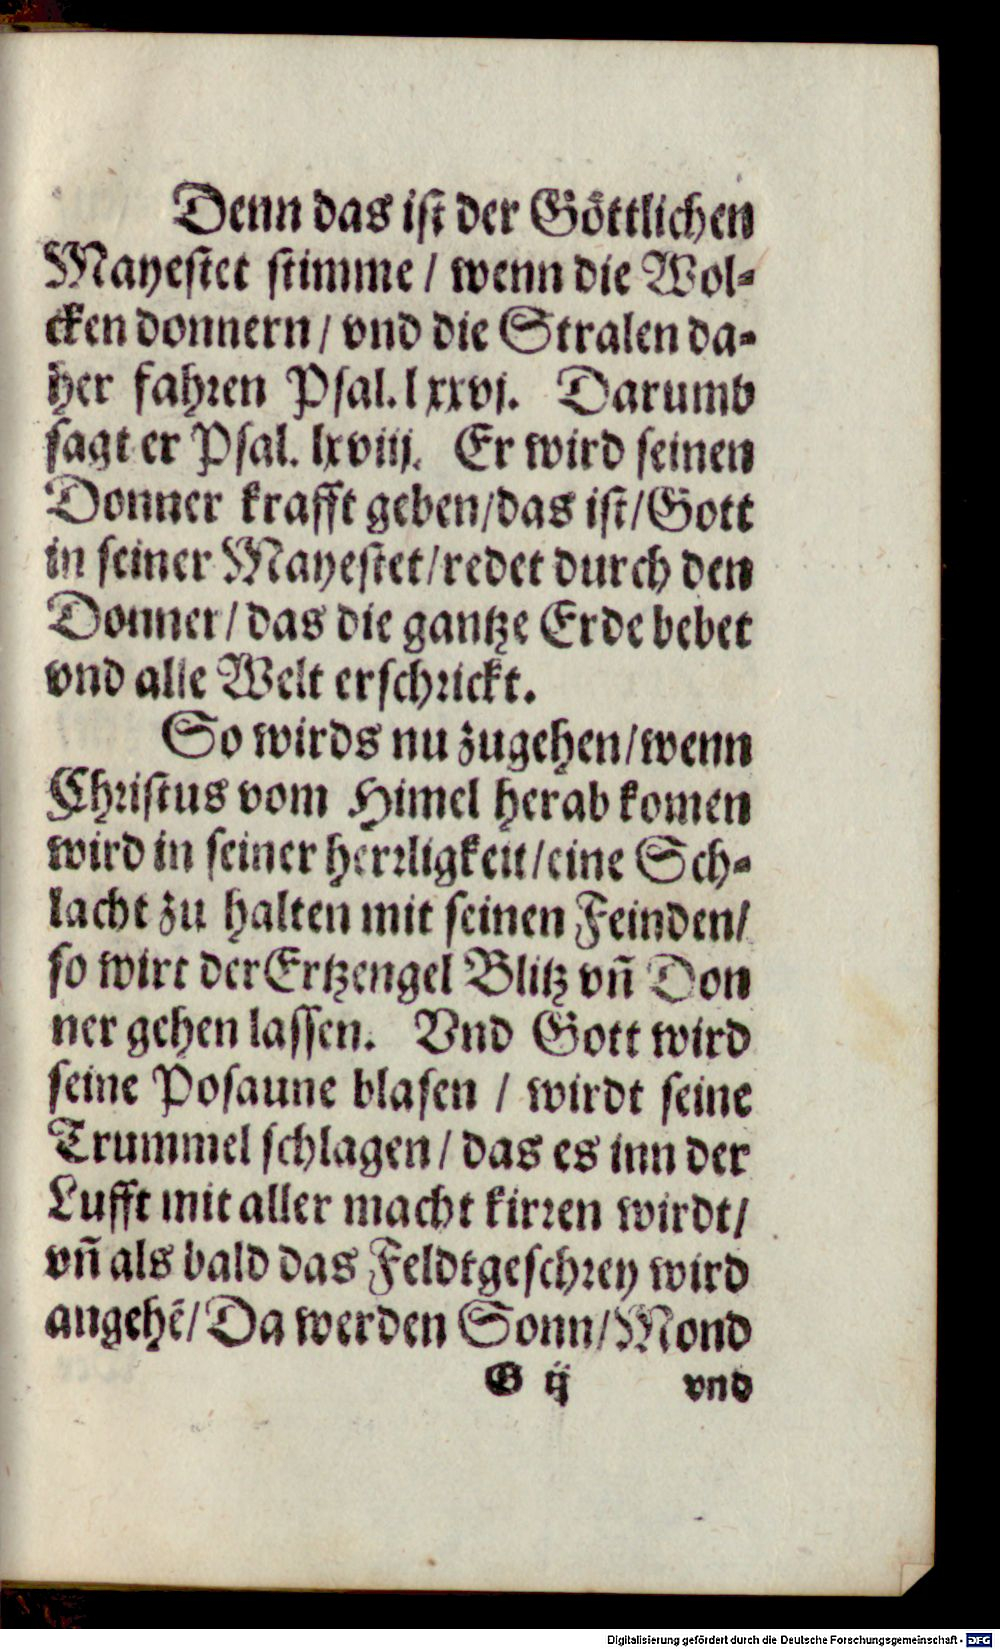 Denn das ist der Göttlichen
Mayestet stimme / wenn die Wol-
cken donnern / vnd die Stralen da-
her fahren Psal. lxxvj. Darumb
sagt er Psal. lxviij. Er wird seinen
Donner krafft geben/das ist/Gott
in seiner Mayestet/redet durch den
Donner/ das die gantze Erde bebet
vnd alle Welt erschrickt.
So wirds nu zugehen/wenn
Christus vom Himel herab komen
wird in seiner herrligkeit/eine Sch-
lacht zu halten mit seinen Feinden/
so wirt der Ertzengel Blitz vn̄ Don
ner gehen lassen. Vnd Gott wird
seine Posaune blasen / wirdt seine
Trummel schlagen/ das es inn der
Lufft mit aller macht kirren wirdt/
vn̄ als bald das Feldtgeschrey wird
angehē/ Da werden Sonn/Mond
G ij vnd
Digitalisierung gefördert durch die Deutsche Forschungsgemeinschaft - DFG